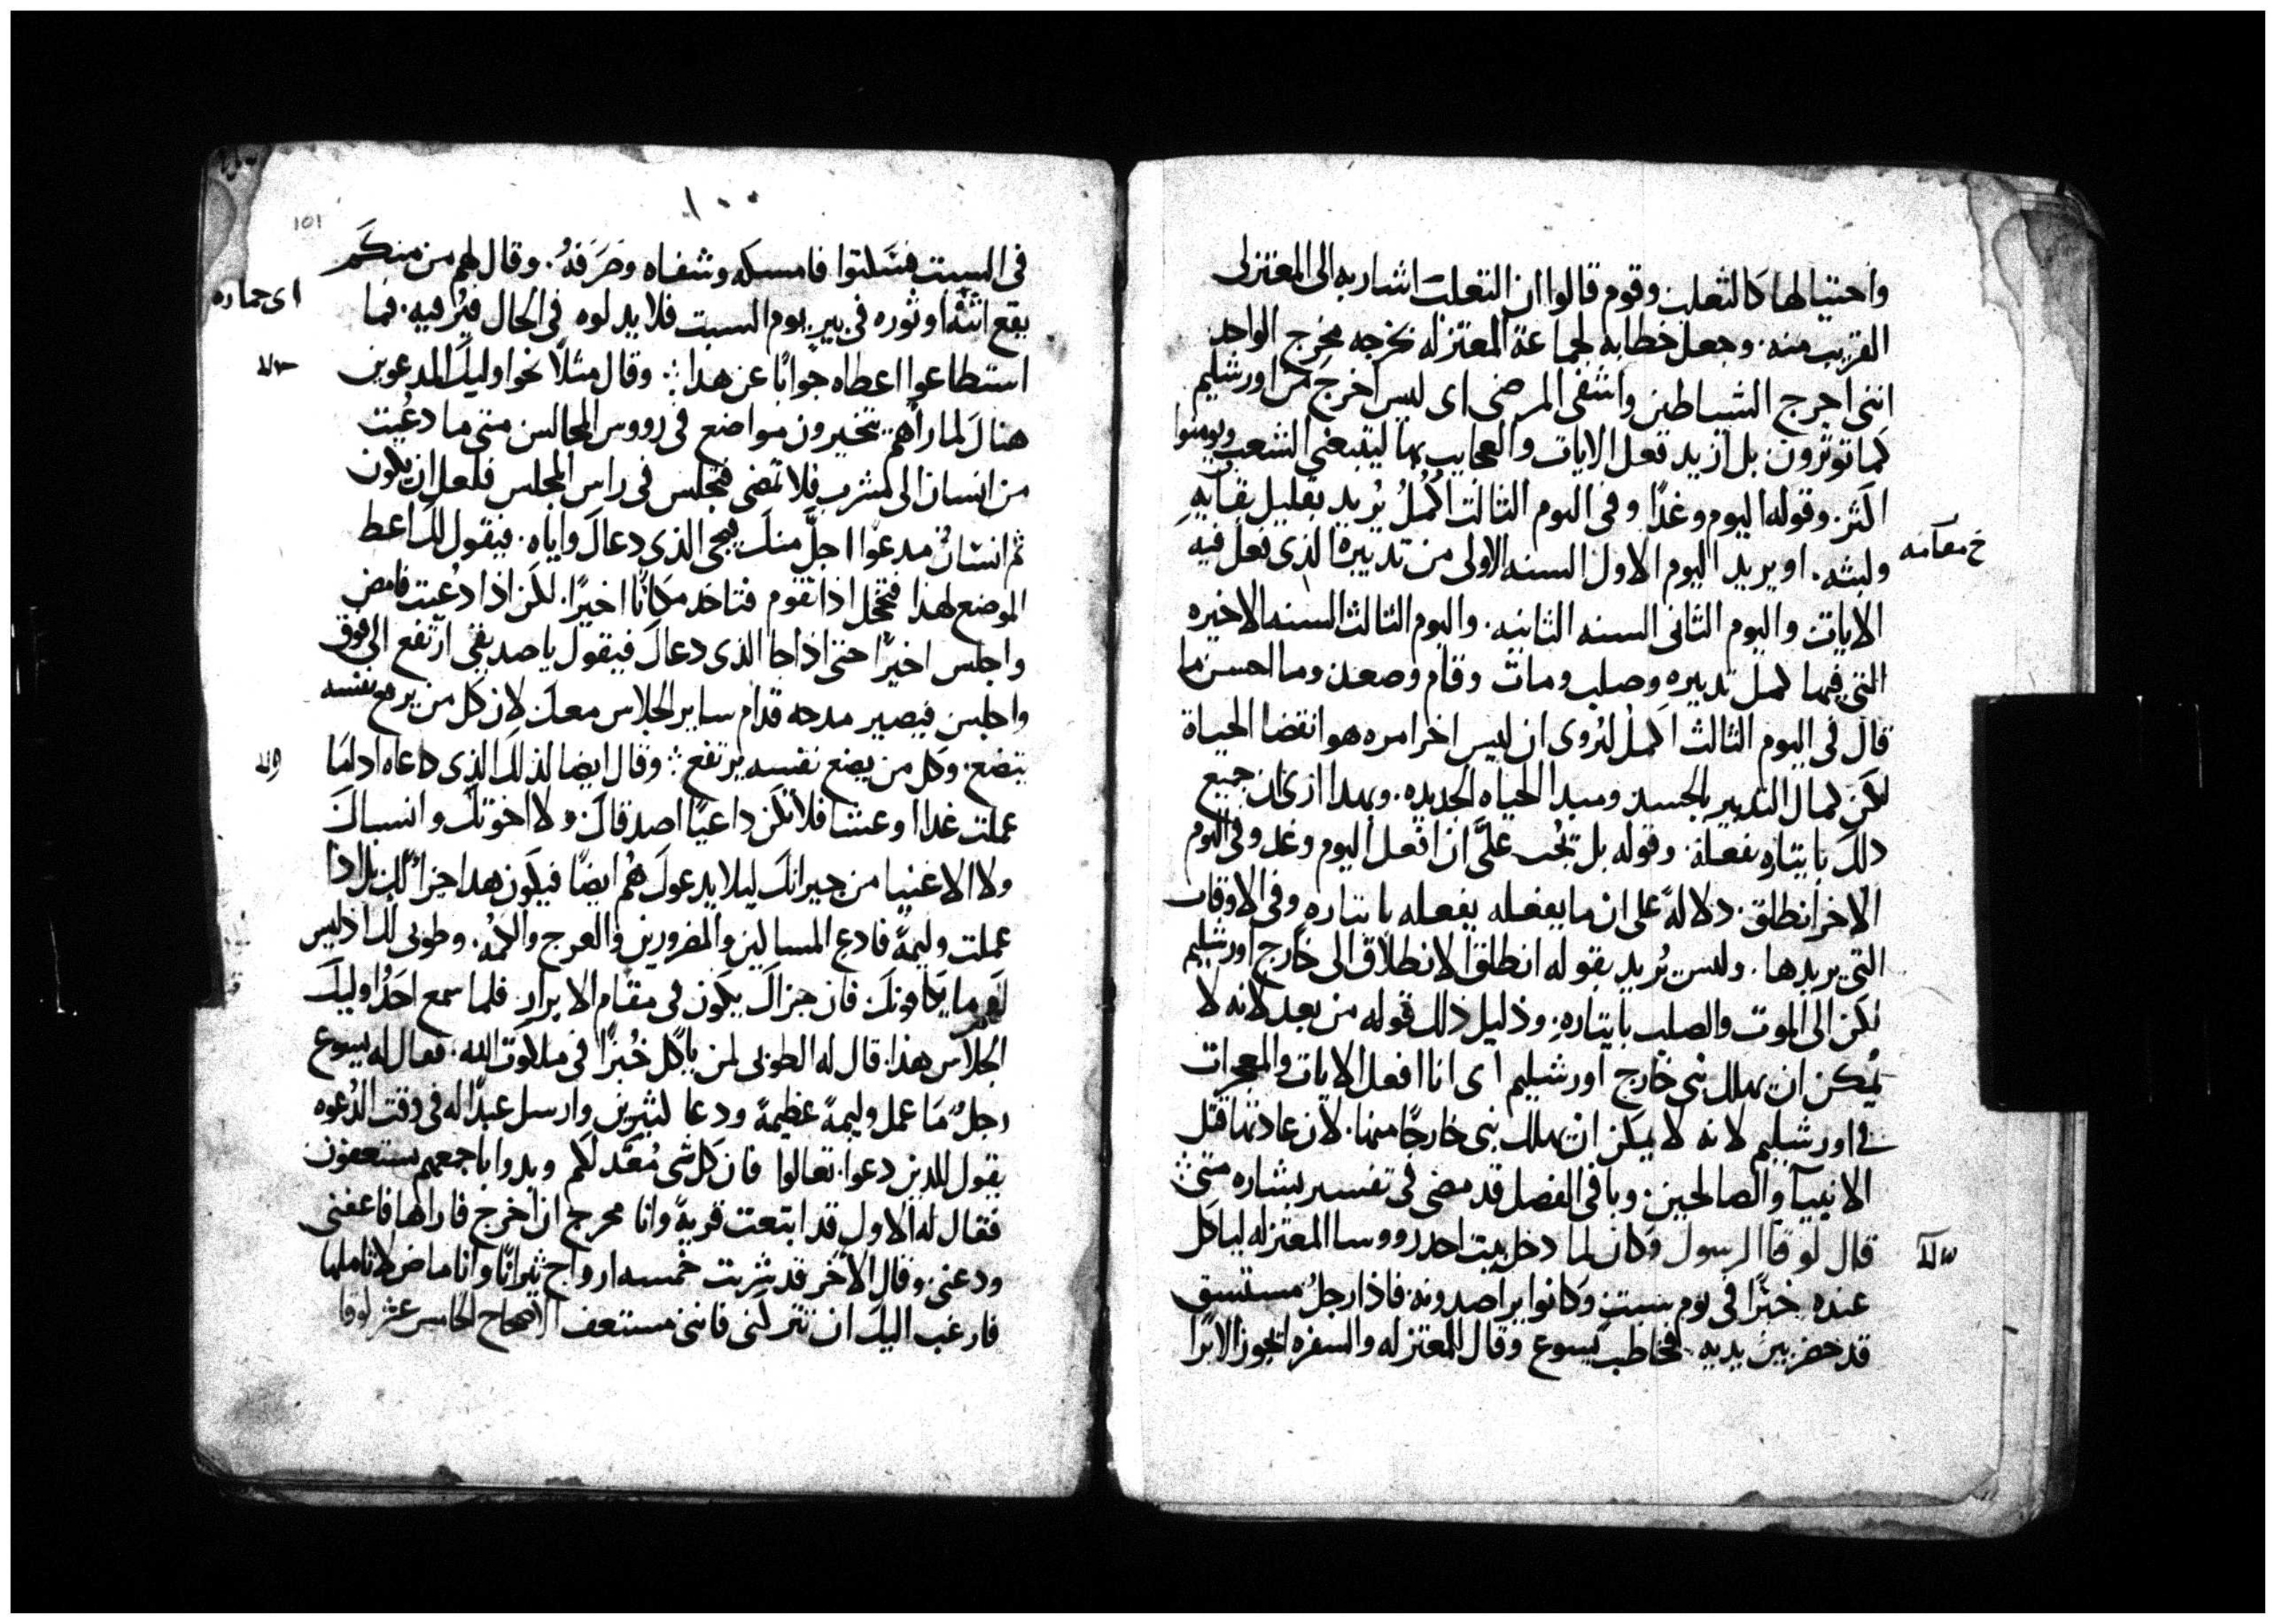 واحتيالها كالثعلب وقوم قالوا ان الثعلب اشار به الى المعتزلى
القريب منه. وجعل خطابه لجماعة المعتزله مخرجه مخرج الواحد
اننى اخرج الشياطين واشفى المرضى اى ليس اخرج من اورشليم
كما توثرون بل ازيد فعل الايات والعجايب بها ليتبعنى الشعب ويومنوا
اكثر. وقوله اليوم وغدًا وفى اليوم الثالث اكمُلُ يُريد بقليل بقايهِ
خ مقامه
ولبثه. او يريد اليوم الاول السنه الاولى من تدبيره الذى فعل فيه
الايات واليوم الثانى السنه الثانيه. واليوم الثالث السنه الاخيره
التى فيها كمل تدبيره وصلب ومات وقام وصعد وما احسن ما
قال فى اليوم الثالث اكمل ليُروى ان ليس اخر امره هو انقضا الحياة
لكن كمال التدبير بالجسد ومبدا الحياه الجديده. وبهدا ازى ان جميع
دلك بايتاره يفعله. وقوله بل يجب علىَّ ان افعل اليوم وغد وفى اليوم
الاخر انطلق. دلالةً على ان ما يفعله يفعله بايتاره وفى الاوقات
التى يريدها. وليس يُريد بقوله انطلق الانطلاق الى خارج اورشليم
لكن الى الموت والصلب بايتارهِ. ودليل ذلك قوله من بعد لانه لا
يُمكن ان يهلك نبى خارج اورشليم اى انا افعل الايات والمعجزات
فى اورشليم لانه لا يمكن ان يهلك نبى خارجًا منها. لان عادتها قتل
الانبيآ والصالحين. وباقى الفصل قد مضى فى تفسير بشاره متى
قال لوقا الرسول وكان لما دخل بيت احد رووسا المعتزله لياكل
عنده خبزًا فى يوم سبت وكانوا يراصدونه. فاذا رجلُ مستسق
قد حضر بين يديه. فخاطب يسوع وقال للمعتزله والسفره ايجوز الابرا
١٠٠
101
فى السبت فسكتوا فامسكه وشفاه وصَرَفهُ. وقال لهم من منكم
اى حماره
يقع اتنُه او ثوره فى بيرٍ يوم السبت فلا يدلوه فى الحال فيثُر فيه. فما
استطاعوا اعطاه جوابًا عن هدا. وقال مثلًا نحو اوليك المدعوين
هناك لما رأهم يتخيرون مواضع فى رووس المجالس متى ما دعُيت
من انسان الى مشرب فلا تمضى فتجلس فى راس المجلس فلعل ان يكون
ثم انسان مدعوًا اجلَّ منك فيجى الذى دعاك واياه. فيقول لك اعط
الموضع لهذا فتخجل اذا تقوم فتاخد مكانًا اخيرًا. لكن اذا دُعيت فامض
واجلس اخيرًا حتى اذا جا الذى دعاك فيقول يا صديقى ارتفع الى فوق
واجلس فيصير مدحه قدام ساير الجلاس معك لان كل من يرفع نفسه
يتضع. وكل من يضع نفسه يرتفع. وقال ايضا لذلك الذى دعاه اذا ما
عملت غدا او عشا فلا تكن داعيًا اصدقاك ولا اخوتك وانسباك
ولا الاغنيا من جيرانك ليلا يدعوك هُم ايضًا فيكون هدا جزاً لك بل اذا
عملت وليمةً فادع المساكين والمضرورين والعرج والكُمه. وطوبى لك اذ ليس
لهم ما يكافونك فان جزاك يكون فى مقام الابرار. فلما سمع احدُ اوليك
الجلاس هذا. قال له الطوبى لمن ياكل خُبزًا فى ملكوت الله. فقال له يسوع
رجلٌ مَا عمل وليمةً عظيمةً ودعا كثيرين وارسل عبدًا له فى وقت الدُعوه
يقول للذين دعوا. تعالوا فان كل شى مُعَّد لكم وبدوا باجمعهم يستعفون
فقال له الاول قد ابتعت قريةً وانا محرج ان اخرج فاراها فاعفنى
ودعنى. وقال الاخر قد شريت خمسه ازواج ثيرانًا وانا ماض لاتاملها
فارغب اليك ان تتركنى فاننى مستعف الاصحاح الخامس عشر لوقا